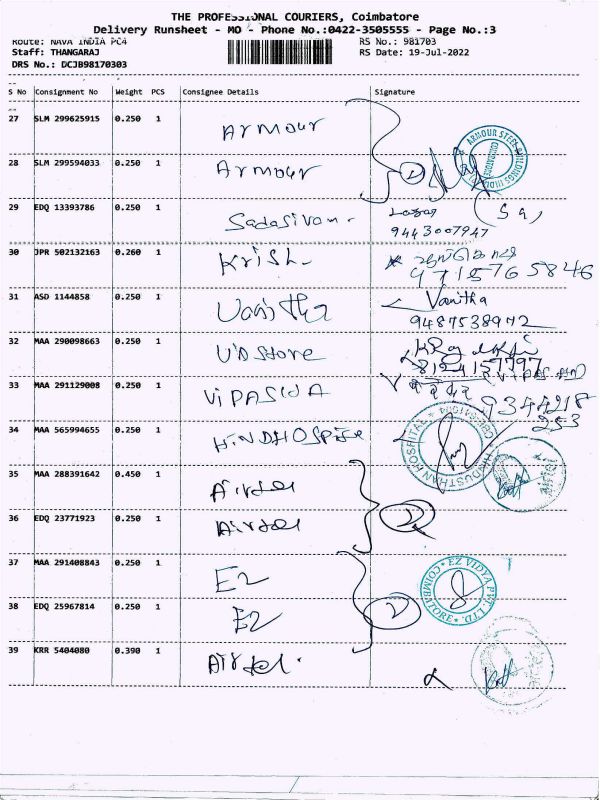 THE PROFESSIONAL COURIERS, Coimbatore
Delivery Runsheet - MO - Phone No.:0422-3505555 - Page No.:3
Route: NAVA INDIA PC4 RS No.: 981703
Staff: THANGARAJ RS Date: 19-Jul-2022
DRS No.: DCJB98170303
S No Consignment No Weight PCS Consignee Details Signature
27 SLM 299625915 0.250 1 Armour
ARMOUR STEEL BUILDINGS INDIA COIMBATORE
28 SLM 299594033 0.250 1 Armour 2
29 EDQ 13393786 0.250 1 Sadasivam.
9443007947
30 JPR 502132163 0.260 1 Krish
9715765846
31 ASD 1144858 0.250 1 Vanitha Vanitha
9487538972
32 MAA 290098663 0.250 1 UD Store
8124157797
33 MAA 291129008 0.250 1 VIPASIDA
9344218
253
34 MAA 565994655 0.250 1 HINDHOSPITAL
HINDUSTHAN HOSPITAL
35 MAA 288391642 0.450 1 Airtel
36 EDQ 23771923 0.250 1 Airtel 2
37 MAA 291408843 0.250 1 EZ
EZ VIDYA PVT. LTD. COIMBATORE
38 EDQ 25967814 0.250 1 EZ 2
39 KRR 5404080 0.390 1 Airtel.